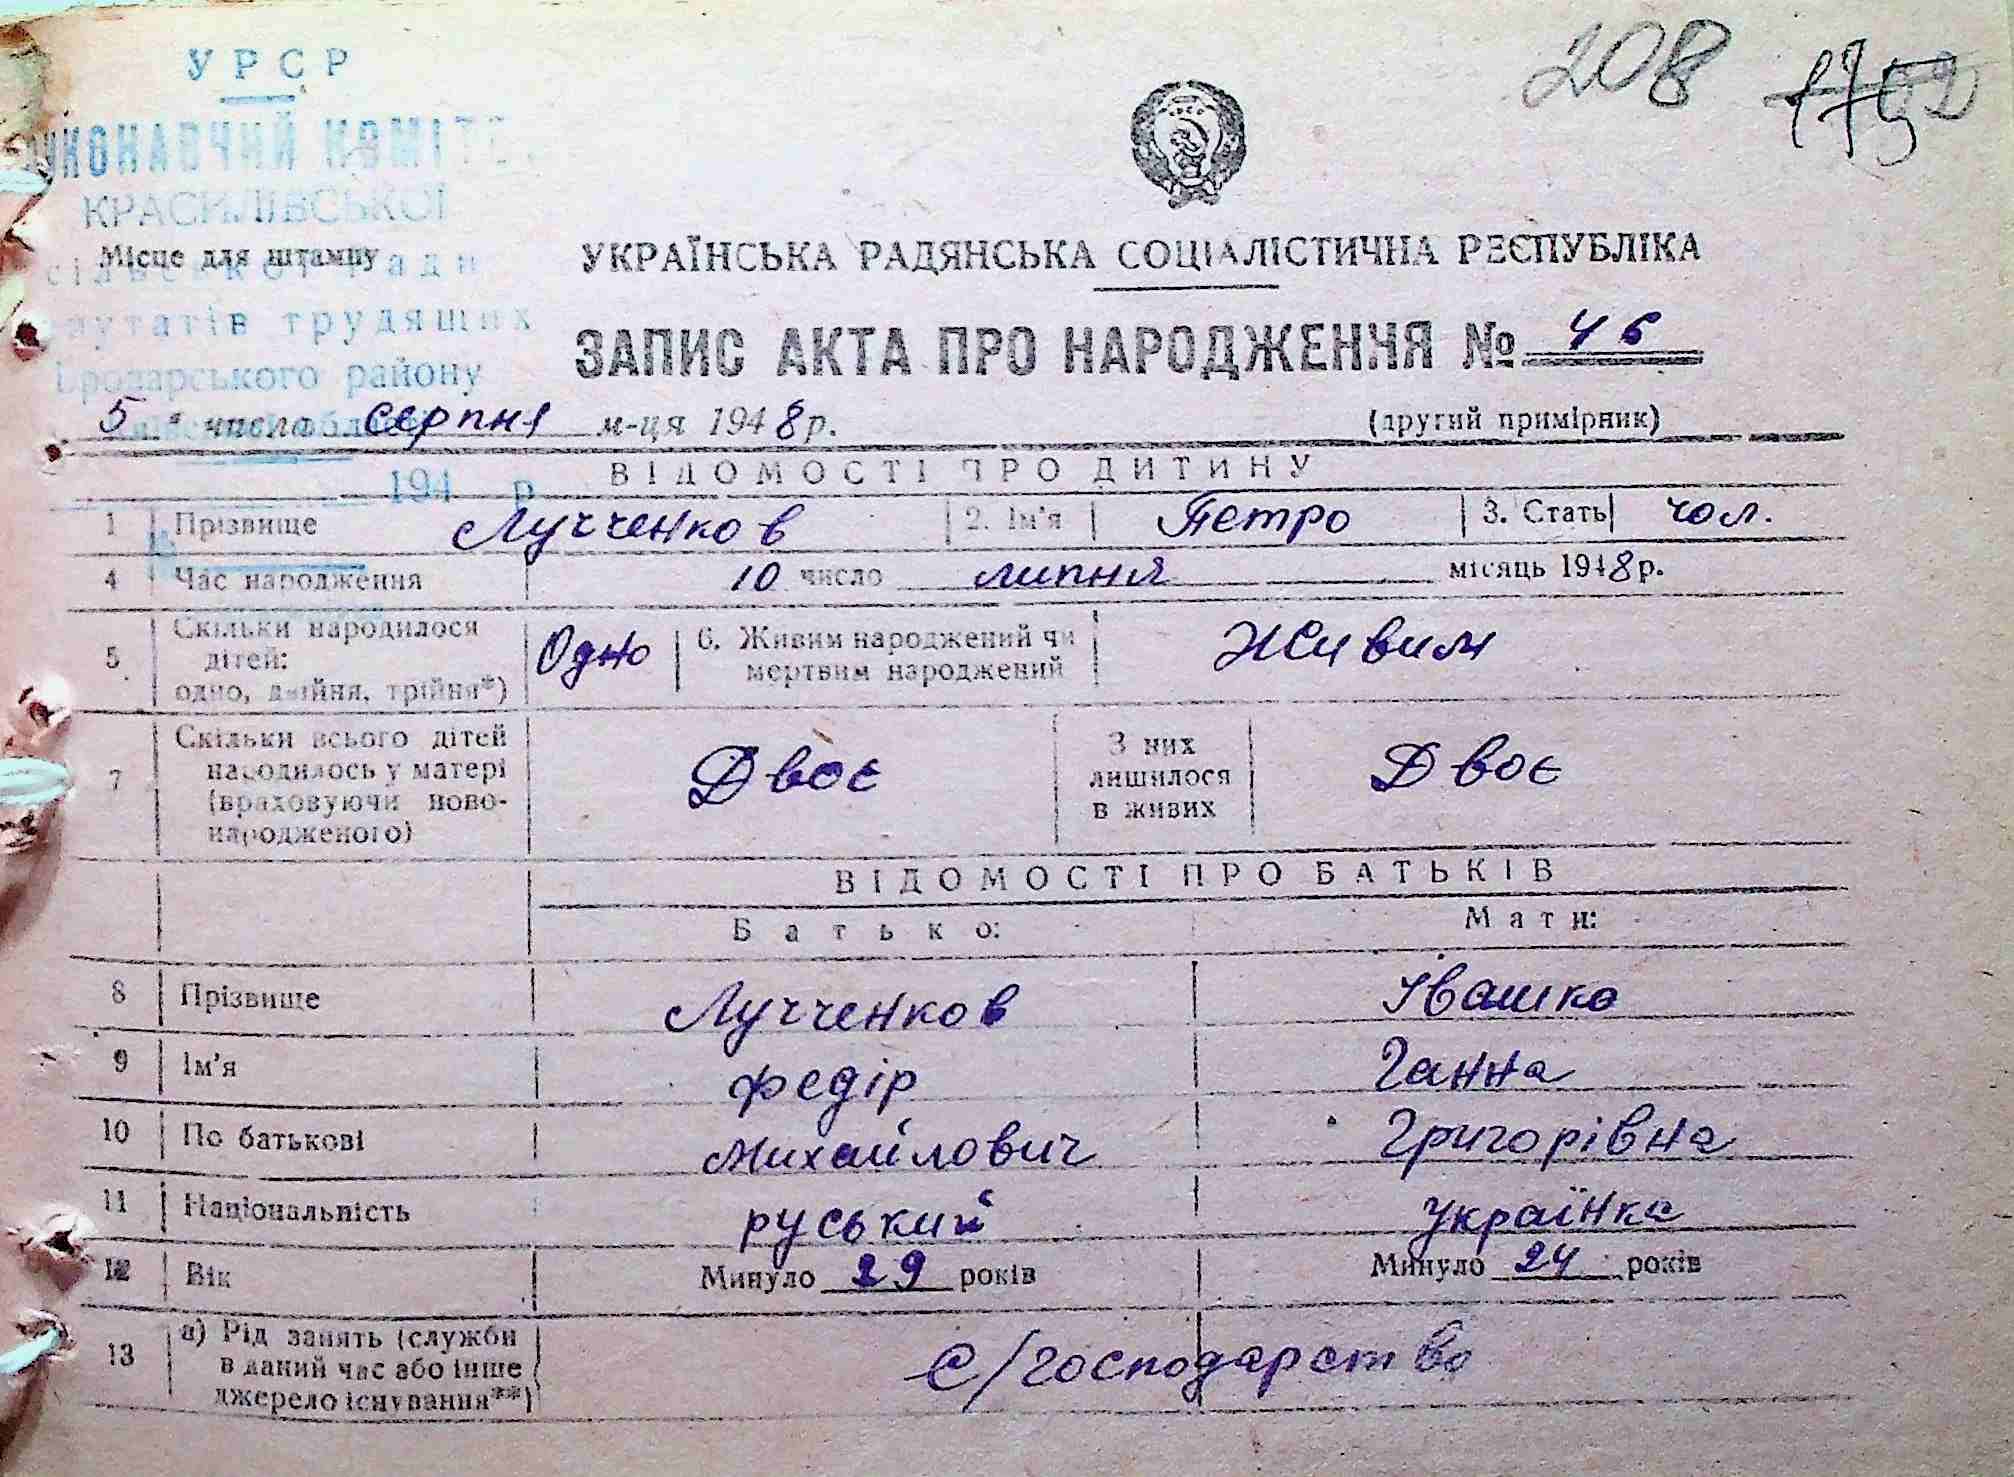 УРСР
208
КРАСИЛІВСЬКОЇ
Місце для штампу
УКРАЇНСЬКА РАДЯНСЬКА СОЦІАЛІСТИЧНА РЕСПУБЛІКА
трудящих
ЗАПИС АКТА ПРО НАРОДЖЕННЯ № 46
району
5 " числа серпня м-ця 1948 р.
(другий примірник)
194 р
ВІДОМОСТІ ПРО ДИТИНУ
1 Прізвище Лучченков 2. Ім'я Петро 3. Стать чол.
4 Час народження 10 число липня місяць 1948 р.
5 Скільки народилося дітей: одно, двійня, трійня*) Одно 6. Живим народжений чи мертвим народжений Живим
7 Скільки всього дітей народилось у матері (враховуючи новонародженого) Двоє З них лишилося в живих Двоє
ВІДОМОСТІ ПРО БАТЬКІВ
Батько: Мати:
8 Прізвище Лучченков Івашко
9 Ім'я Федір Ганна
10 По батькові Михайлович Григорівна
11 Національність руський українка
12 Вік Минуло 29 років Минуло 24 років
13 а) Рід занять (служби в даний час або інше джерело існування**) с/господарство